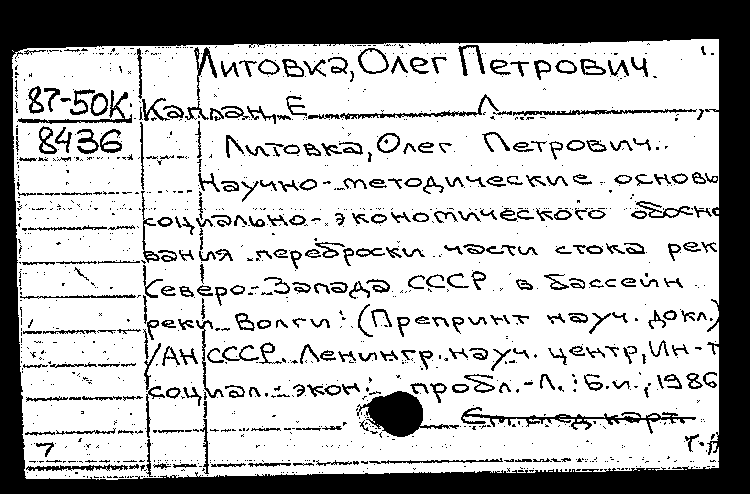 Литовка, Олег Петрович.
87-50К Каплан, Е Л
8436 Литовка, Олег Петрович..
Научно-методические основы
социально-экономического обосно
вания переброски части стока рек
Северо-Запада СССР в бассейн
реки Волги: (Препринт науч. докл.)
/АН СССР. Ленингр. науч. центр, Ин-т
социал.-экон. пробл.-Л.: Б.и., 1986
См. след. карт.